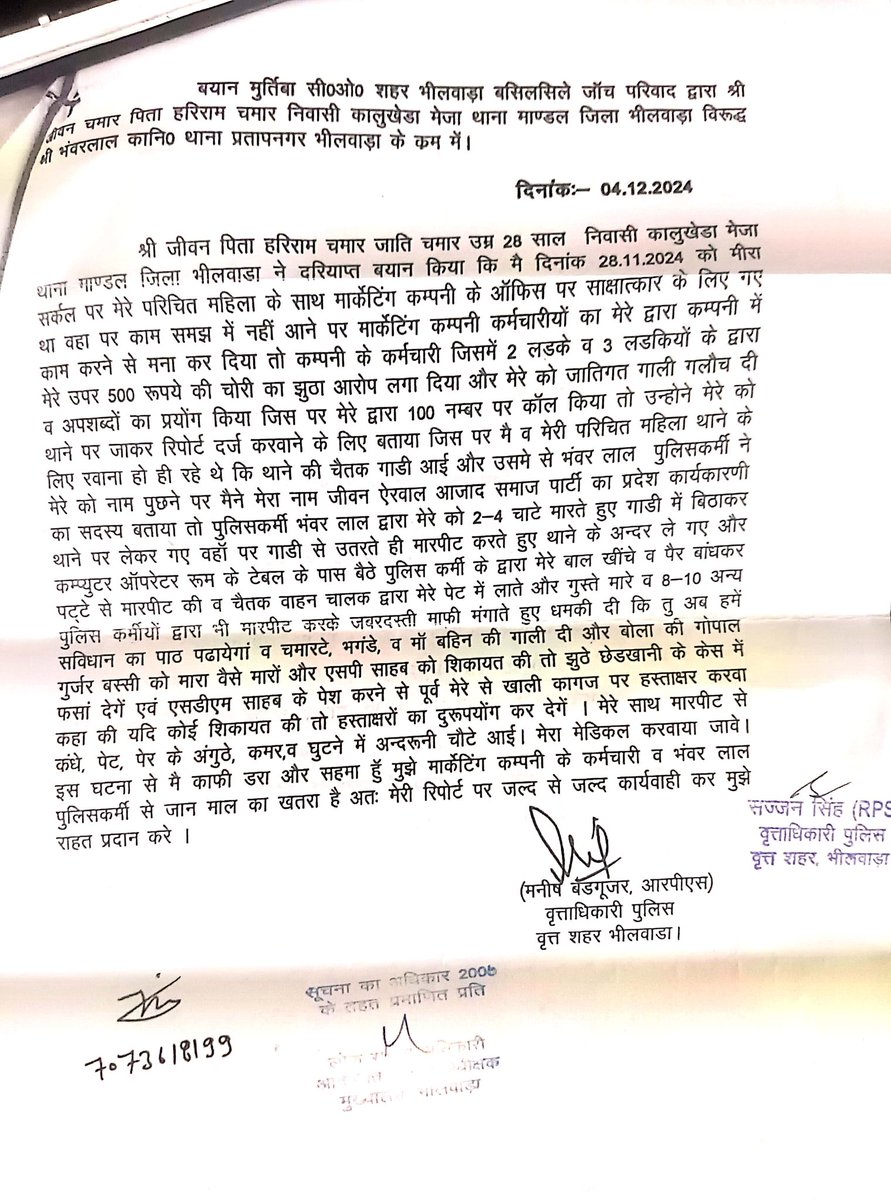 बयान मुर्तिबा सी०ओ० शहर भीलवाड़ा बसिलसिले जॉच परिवाद द्वारा श्री
जीवन चमार पिता हरिराम चमार निवासी कालुखेडा मेजा थाना माण्डल जिला भीलवाडा विरूद्ध
श्री भंवरलाल कानि० थाना प्रतापनगर भीलवाडा के कम में।
दिनांकः– 04.12.2024
श्री जीवन पिता हरिराम चमार जाति चमार उम्र 28 साल निवासी कालुखेडा मेजा
थाना माण्डल जिला भीलवाडा ने दरियाप्त बयान किया कि मै दिनांक 28.11.2024 को मीरा
सर्कल पर मेरे परिचित महिला के साथ मार्केटिंग कम्पनी के ऑफिस पर साक्षात्कार के लिए गए
था वहा पर काम समझ में नहीं आने पर मार्केटिंग कम्पनी कर्मचारीयों का मेरे द्वारा कम्पनी में
काम करने से मना कर दिया तो कम्पनी के कर्मचारी जिसमें 2 लडके व 3 लडकियों के द्वारा
मेरे उपर 500 रूपये की चोरी का झुठा आरोप लगा दिया और मेरे को जातिगत गाली गलौच दी
व अपशब्दों का प्रयोंग किया जिस पर मेरे द्वारा 100 नम्बर पर कॉल किया तो उन्होने मेरे को
थाने पर जाकर रिपोर्ट दर्ज करवाने के लिए बताया जिस पर मै व मेरी परिचित महिला थाने के
लिए रवाना हो ही रहे थे कि थाने की चैतक गाडी आई और उसमे से भंवर लाल पुलिसकर्मी ने
मेरे को नाम पुछने पर मैने मेरा नाम जीवन ऐरवाल आजाद समाज पार्टी का प्रदेश कार्यकारणी
का सदस्य बताया तो पुलिसकर्मी भंवर लाल द्वारा मेरे को 2–4 चाटे मारते हुए गाडी में बिठाकर
थाने पर लेकर गए वहॉ पर गाडी से उतरते ही मारपीट करते हुए थाने के अन्दर ले गए और
कम्प्युटर ऑपरेटर रूम के टेबल के पास बैठे पुलिस कर्मी के द्वारा मेरे बाल खींचे व पैर बांधकर
पट्टे से मारपीट की व चैतक वाहन चालक द्वारा मेरे पेट में लाते और गुस्ते मारे व 8–10 अन्य
पुलिस कर्मीयों द्वारा भी मारपीट करके जबरदस्ती माफी मंगाते हुए धमकी दी कि तु अब हमें
सविधान का पाठ पढायेगां व चमारटे, भगंडे, व मॉ बहिन की गाली दी और बोला की गोपाल
गुर्जर बस्सी को मारा वैसे मारों और एसपी साहब को शिकायत की तो झुठे छेडखानी के केस में
फसां देगें एवं एसडीएम साहब के पेश करने से पूर्व मेरे से खाली कागज पर हस्ताक्षर करवा
कहा की यदि कोई शिकायत की तो हस्ताक्षरों का दुरूपयोंग कर देगें । मेरे साथ मारपीट से
कंधे, पेट, पेर के अंगुठे, कमर,व घुटने में अन्दरूनी चौटे आई। मेरा मेडिकल करवाया जावे।
इस घटना से मै काफी डरा और सहमा हुॅ मुझे मार्केटिंग कम्पनी के कर्मचारी व भंवर लाल
पुलिसकर्मी से जान माल का खतरा है अतः मेरी रिपोर्ट पर जल्द से जल्द कार्यवाही कर मुझे
राहत प्रदान करे ।
सज्जन सिंह (RPS
वृत्ताधिकारी पुलिस
वृत्त शहर, भीलवाड़ा
(मनीष बडगूजर, आरपीएस)
वृत्ताधिकारी पुलिस
वृत्त शहर भीलवाडा।
सूचना का अधिकार 2005
के तहत प्रमाणित प्रति
7073618199